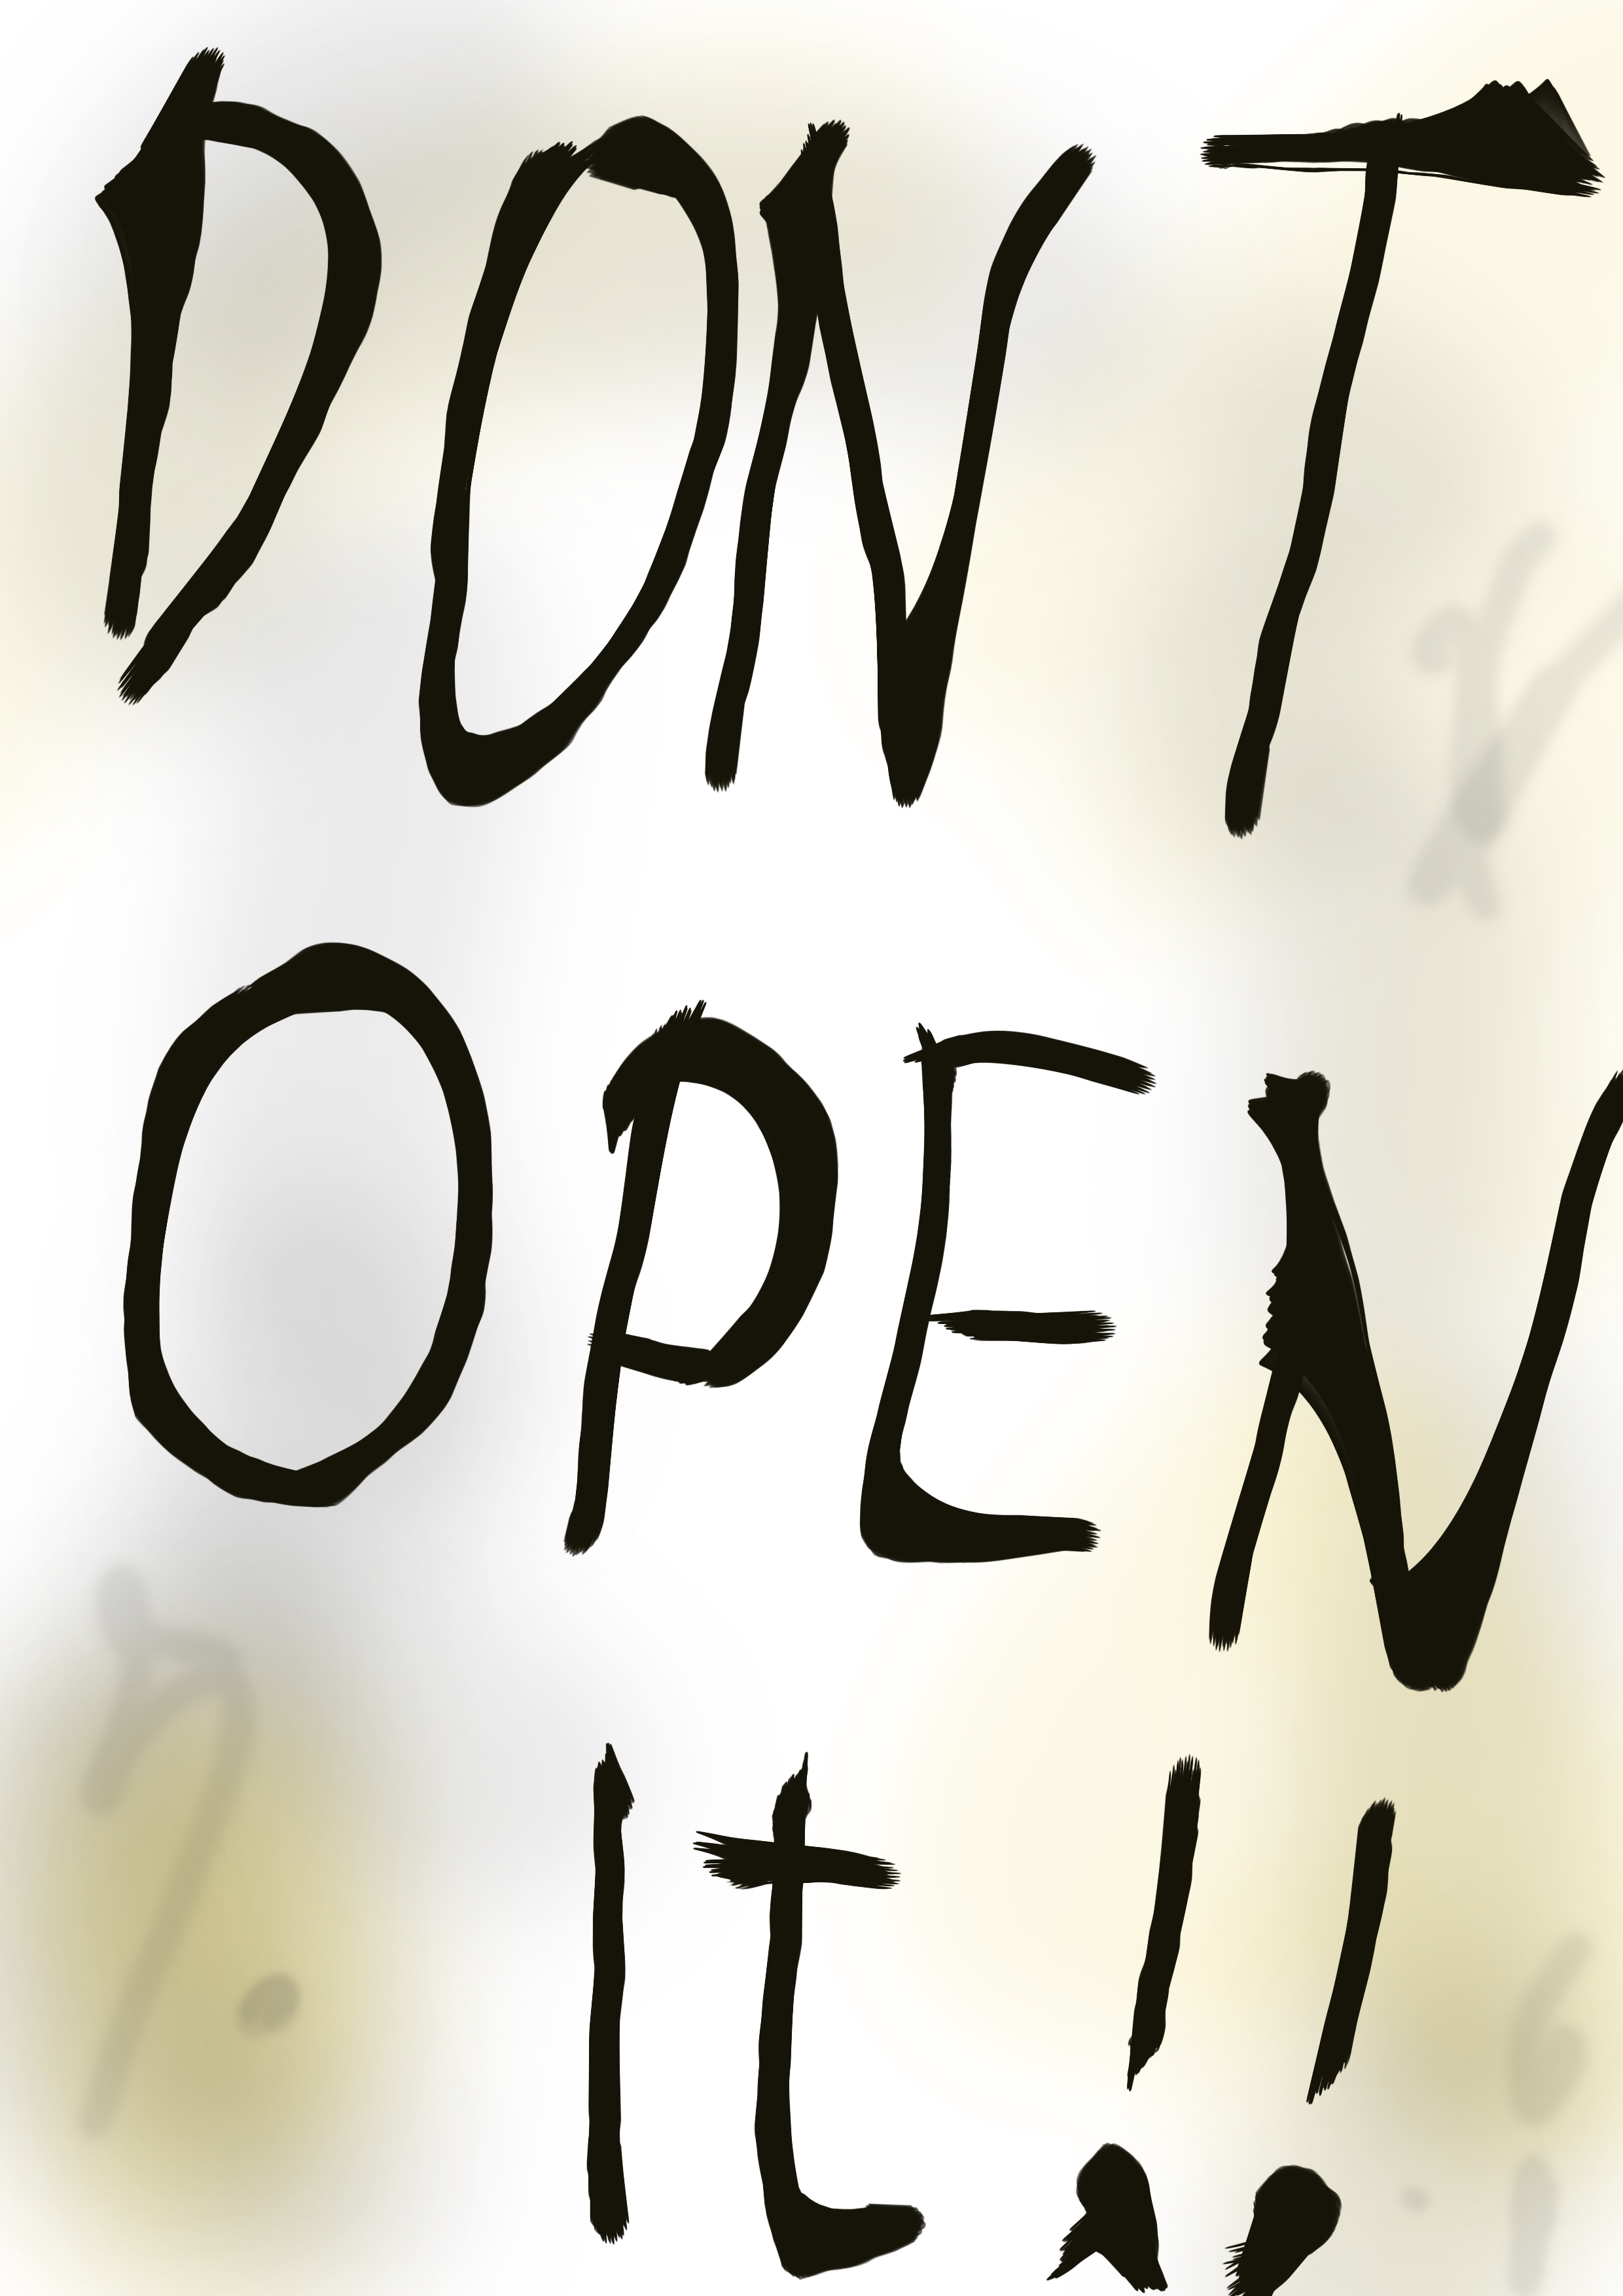 DON T
OPEN
It !!